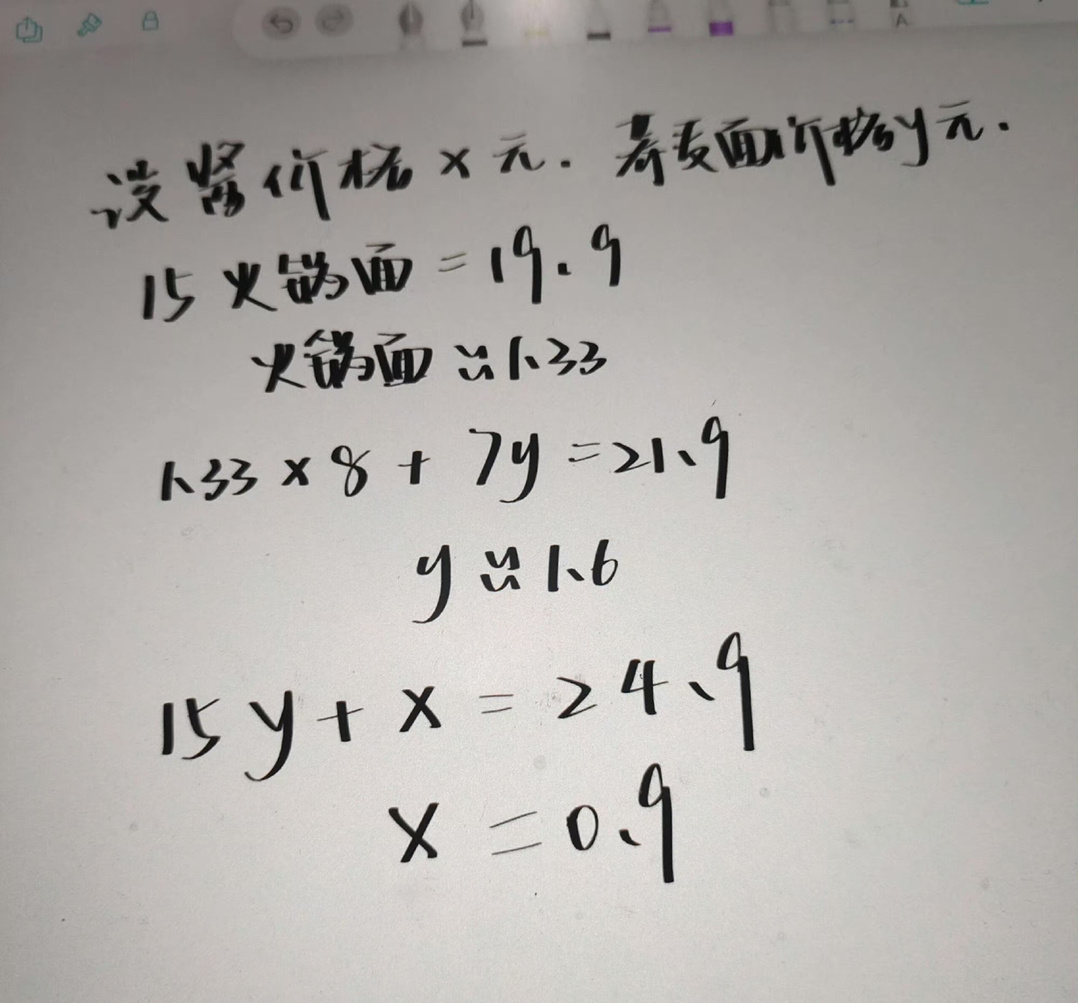 设酱价格x元.荞麦面价格y元.
15火锅面=19.9
火锅面≈1.33
1.33×8+7y=21.9
y≈1.6
15y+x=24.9
x=0.9